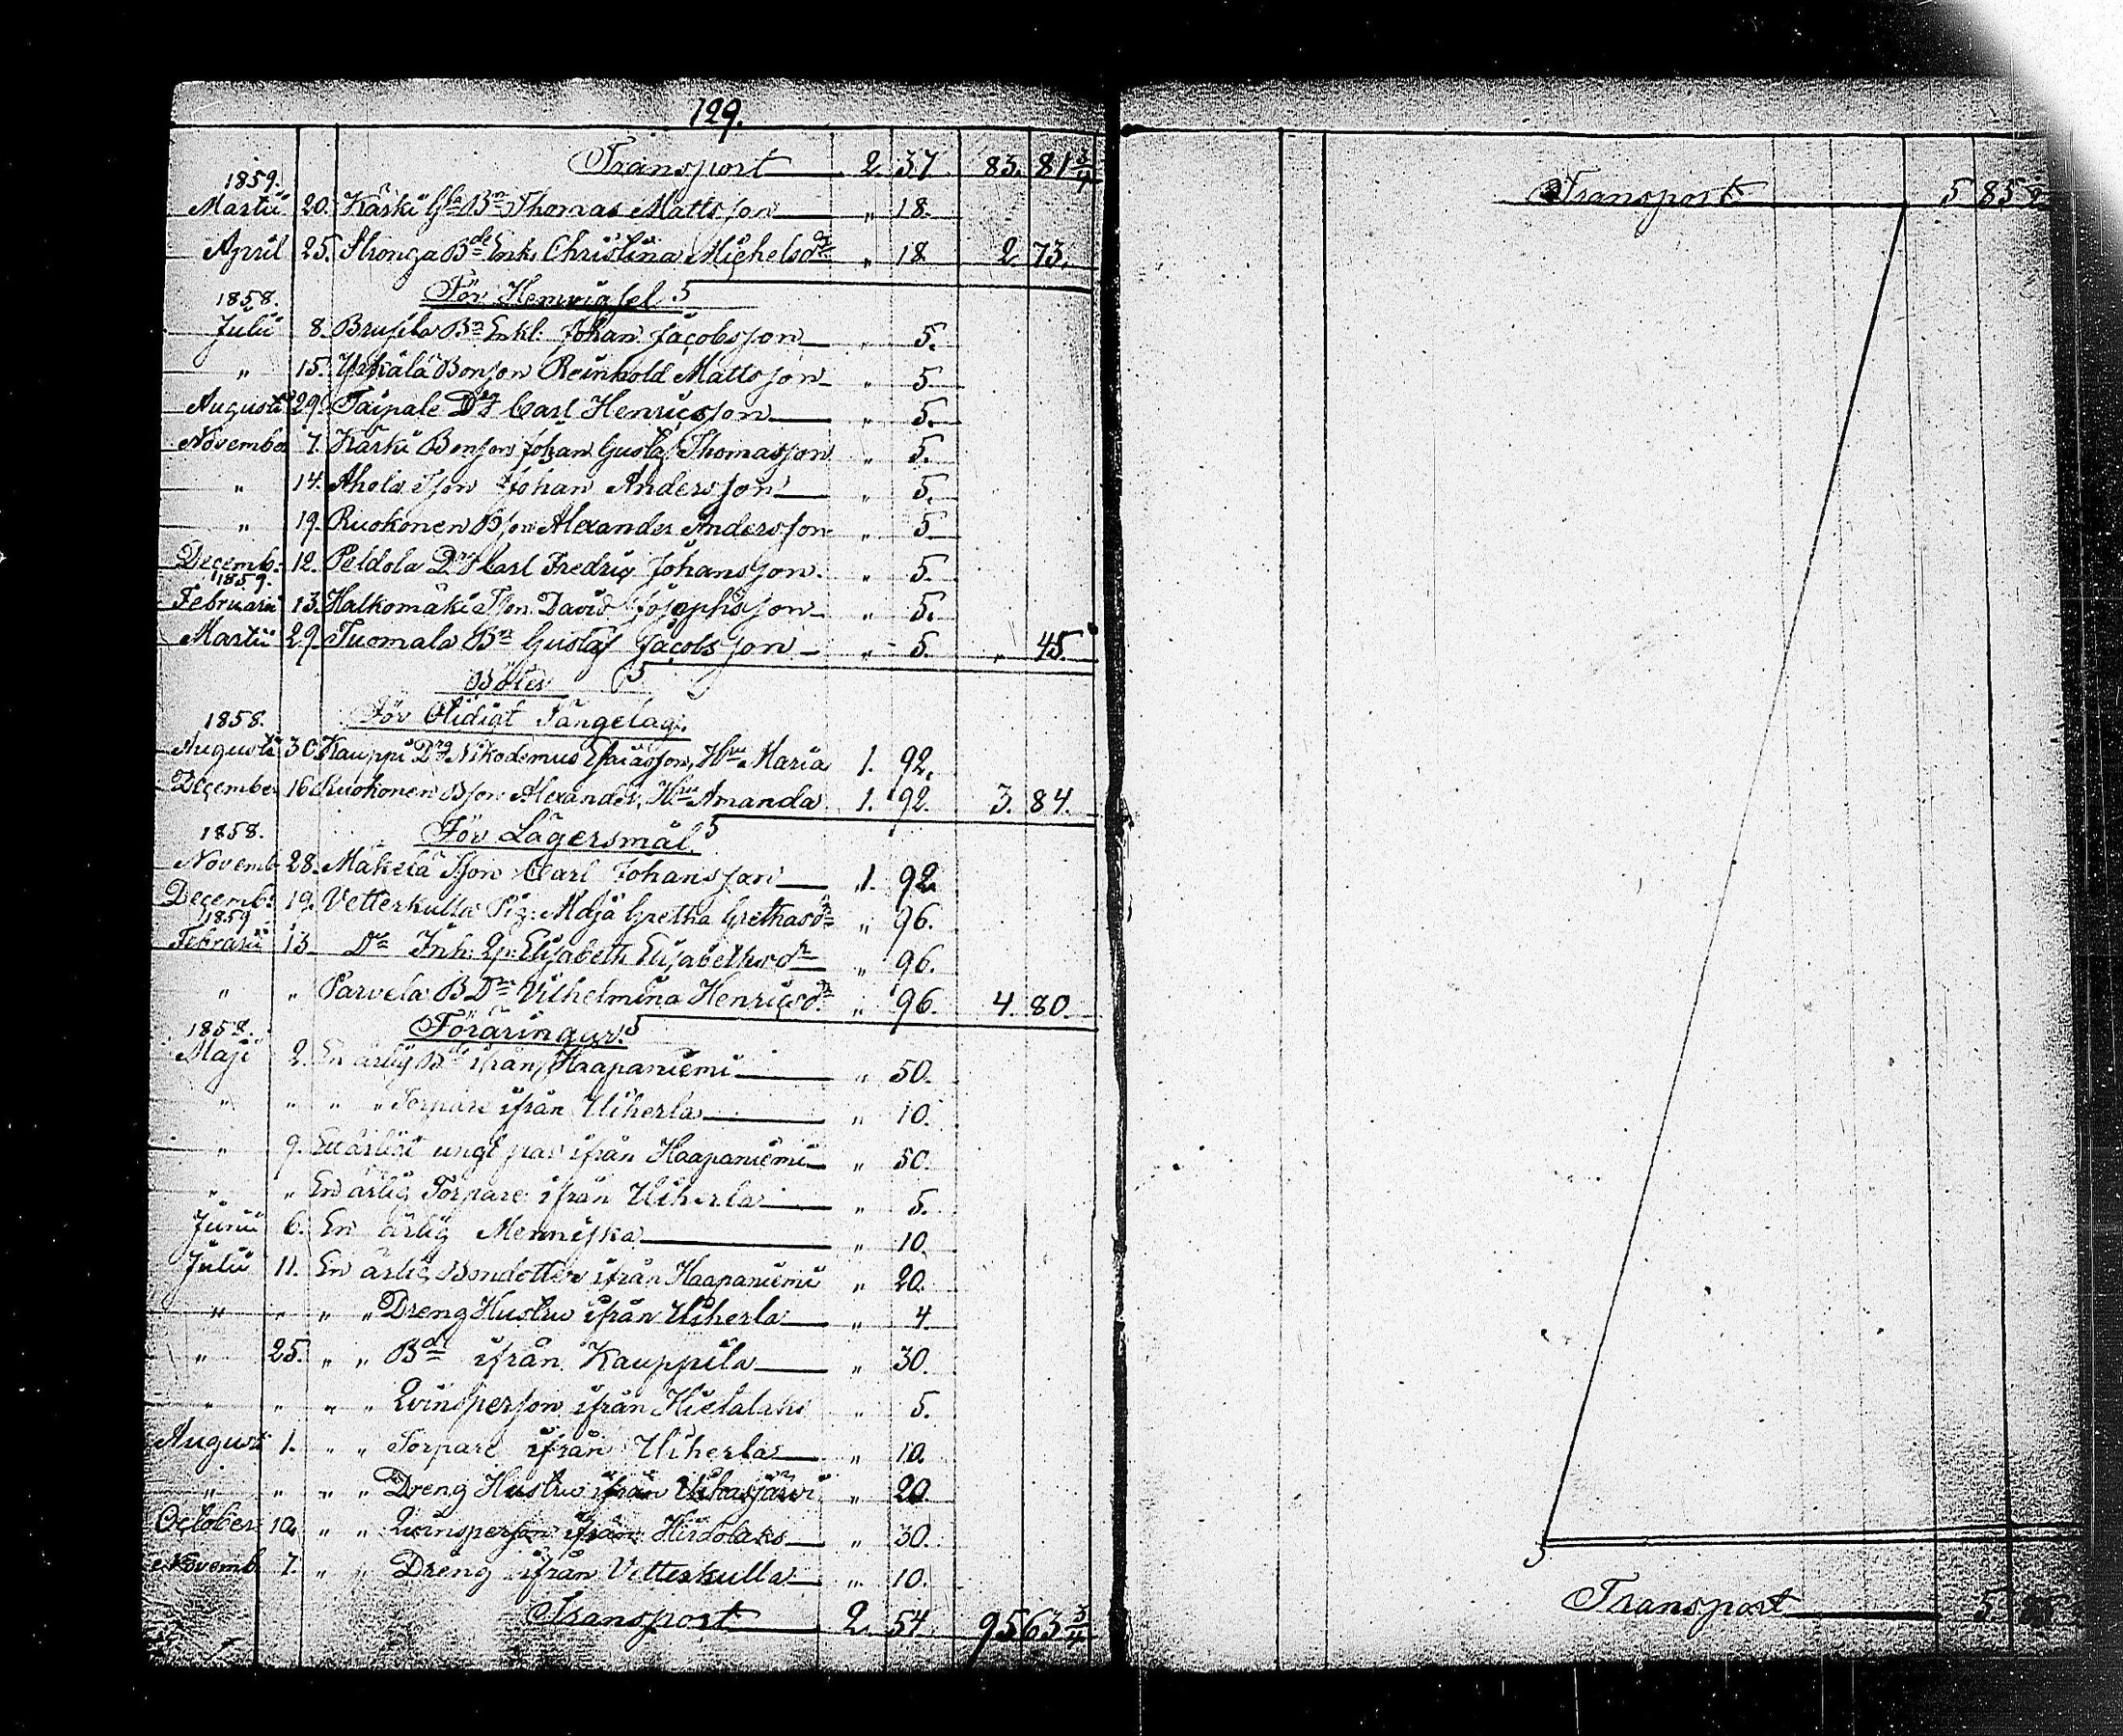 129.
Transport 2. 37 83. 81 3/4
1859.
Martii 20. Käski Gle Bn Thomas Mattsson " 18.
April 25. Bde Enk. Christina Michelsdr " 18 2. 73.
1858. För Hemvigsel
Julii 8. Brusila Bn Enkl. Johan Jacobsson " 5.
" 15. Yrkälä Bonson Reinhold Mattsson " 5
Augusti 29. Taipale Dg Carl Henricsson " 5.
November 7. Käski Bonson Johan Gustaf Thomasson " 5.
" 14. Ahola Tson Johan Andersson " 5.
" 19. Ruokonen Bson Alexander Andersson " 5
Decemb. 12. Peldola Drg Carl Fredric Johansson " 5.
1859.
Februarii 13. Halkomäki Tson David Josephsson " 5.
Martii 29. Tuomala Bn Gustaf Jacobsson " 5. " 45.
Böter
1858. För Otidigt Sängelag.
Augusti 30. Kauppi Drg Nikodemus Esaiasson, Hru Maria 1. 92.
December 16 Ruokonen Bson Alexander, Hru Amanda 1. 92. 3. 84.
1858. För Lägersmål
Novemb. 28. Mäkelä Sson Carl Johansson 1. 92.
Decemb. 19. Vetterkulla Pig. Maja Gretha Grethasdr " 96.
1859
Februarii 13. Do Inh. Qp. Elisabeth Elisabethsdr " 96.
" " Parvela B Dr Vilhelmina Henricsdr " 96. 4. 80.
1858. Föräringar.
Maji 2. En ärlig Bde ifrån Haapaniemi " 50.
" " " " Torpare ifrån Uiherla " 10.
" 9. Ett ärligt ungt par ifrån Haapaniemi " 50.
" " En ärlig Torpare ifrån Uiherla " 5.
Junii 6. En ärlig Menniska " 10.
Julii 11. En ärlig Bondotter ifrån Haapaniemi " 20.
" " " " Dreng Hustru ifrån Uiherla " 4.
" 25. " " Bde ifrån Kauppila " 30.
" " " " Qvinsperson ifrån " 5.
Augusti 1. " " Torpare ifrån Uiherla " 10.
" " " " Dreng Hustru ifrån " 20.
October 10. " " Qvinsperson ifrån " 30.
Novemb. 7. " " Dreng ifrån Vetterkulla " 10.
Transport 2. 54. 95 63 3/4
Transport 5 85
Transport 5